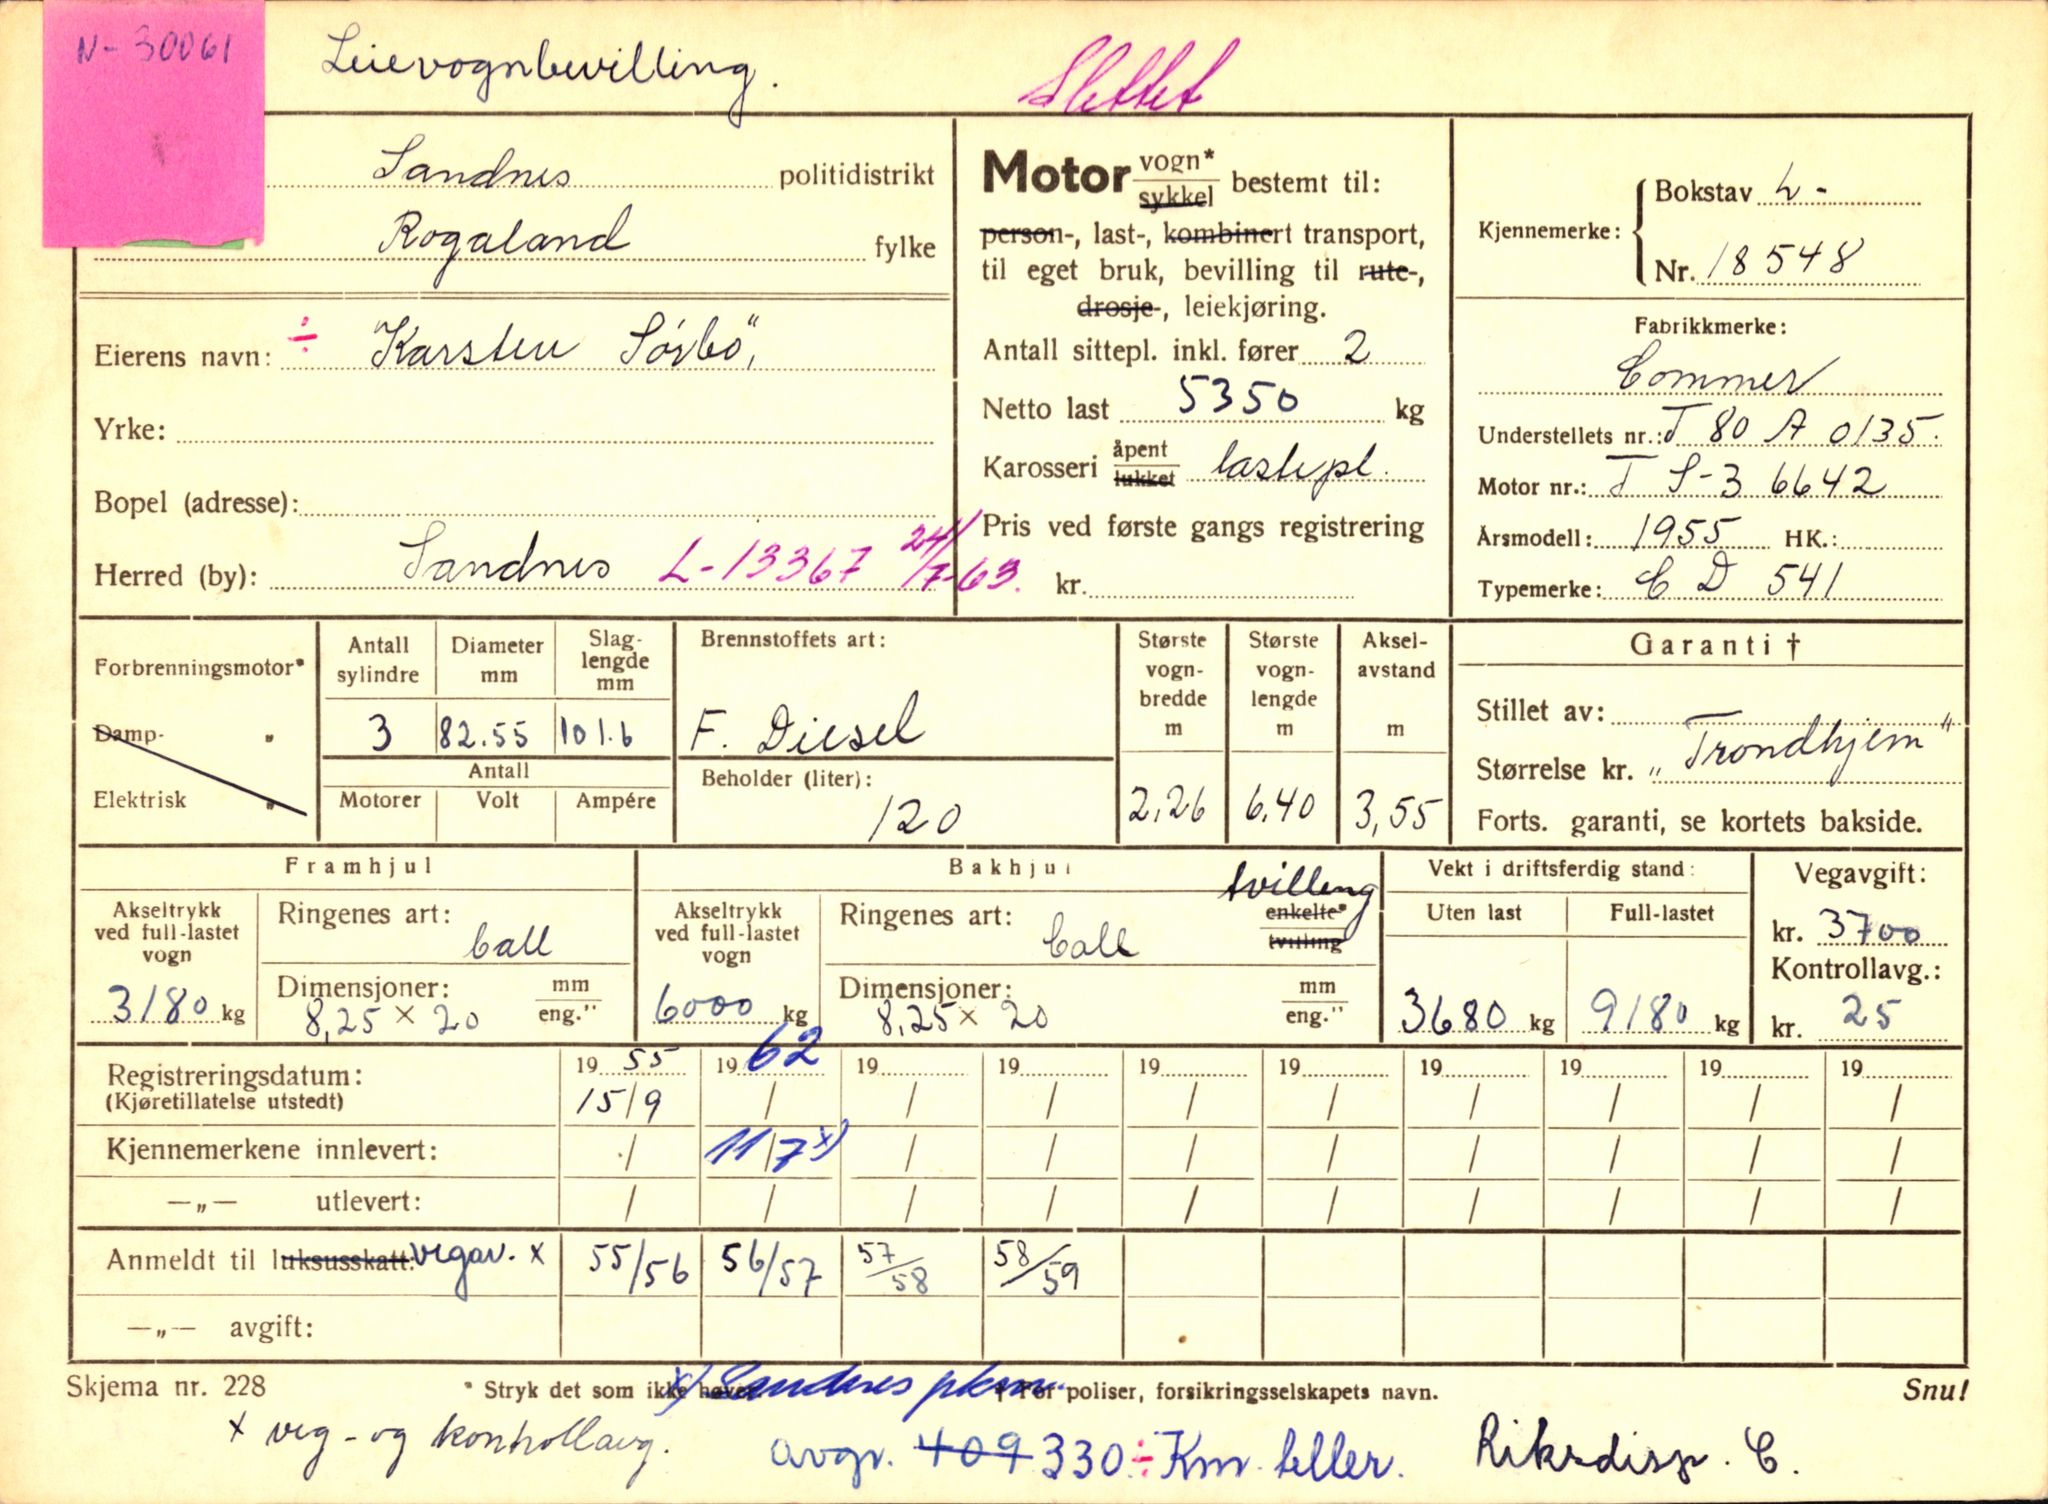 N- 30061
Leievognbevilling.
Slettet
Sandnes politidistrikt
Rogaland fylke
Eierens navn: ÷ "Karsten Sörbö",
Yrke:
Bopel (adresse):
Herred (by): Sandnes L-13367 24/7-63.
Motor vogn* sykkel bestemt til:
person-, last-, kombinert transport,
til eget bruk, bevilling til rute-,
drosje-, leiekjøring.
Antall sittepl. inkl. fører 2
Netto last 5350 kg
Karosseri åpent lukket lastepl.
Pris ved første gangs registrering
kr.
Kjennemerke: Bokstav L-
Nr. 18548
Fabrikkmerke:
Commer
Understellets nr.: T 80 A 0135.
Motor nr.: T S-3 6642
Årsmodell: 1955 HK.:
Typemerke: C D 541
Forbrenningsmotor*
Damp- „
Elektrisk „
Antall sylindre
3
Diameter mm
82.55
Slag-lengde mm
101.6
Antall
Motorer Volt Ampére
Brennstoffets art:
F. Diesel
Beholder (liter):
120
Største vogn-bredde m
2,26
Største vogn-lengde m
6,40
Aksel-avstand m
3,55
Garanti †
Stillet av:
Størrelse kr. „Trondhjem"
Forts. garanti, se kortets bakside.
Framhjul
Akseltrykk
ved full-lastet
vogn
3180 kg
Ringenes art:
Call
Dimensjoner: mm eng."
8,25 × 20
Bakhjul
Akseltrykk
ved full-lastet
vogn
6000 kg
Ringenes art: tvilling enkelte* tvilling
Call
Dimensjoner: mm eng."
8,25 × 20
Vekt i driftsferdig stand:
Uten last Full-lastet
3680 kg 9180 kg
Vegavgift:
kr. 3700
Kontrollavg.:
kr. 25
Registreringsdatum: 19 55 19 62 19 19 19 19 19 19 19 19
(Kjøretillatelse utstedt) 15/9 / / / / / / / / /
Kjennemerkene innlevert: / 11/7 x) / / / / / / / /
—„— utlevert: / / / / / / / / / /
Anmeldt til luksusskatt: vegav. x 55/56 56/57 57/58 58/59
—„— avgift:
Skjema nr. 228 * Stryk det som ikke høver. x) Sandnes pkm. † For poliser, forsikringsselskapets navn. Snu!
x veg- og kontrollavg.
avgr. 409 330 ÷ Km teller. Riksdisp. C.